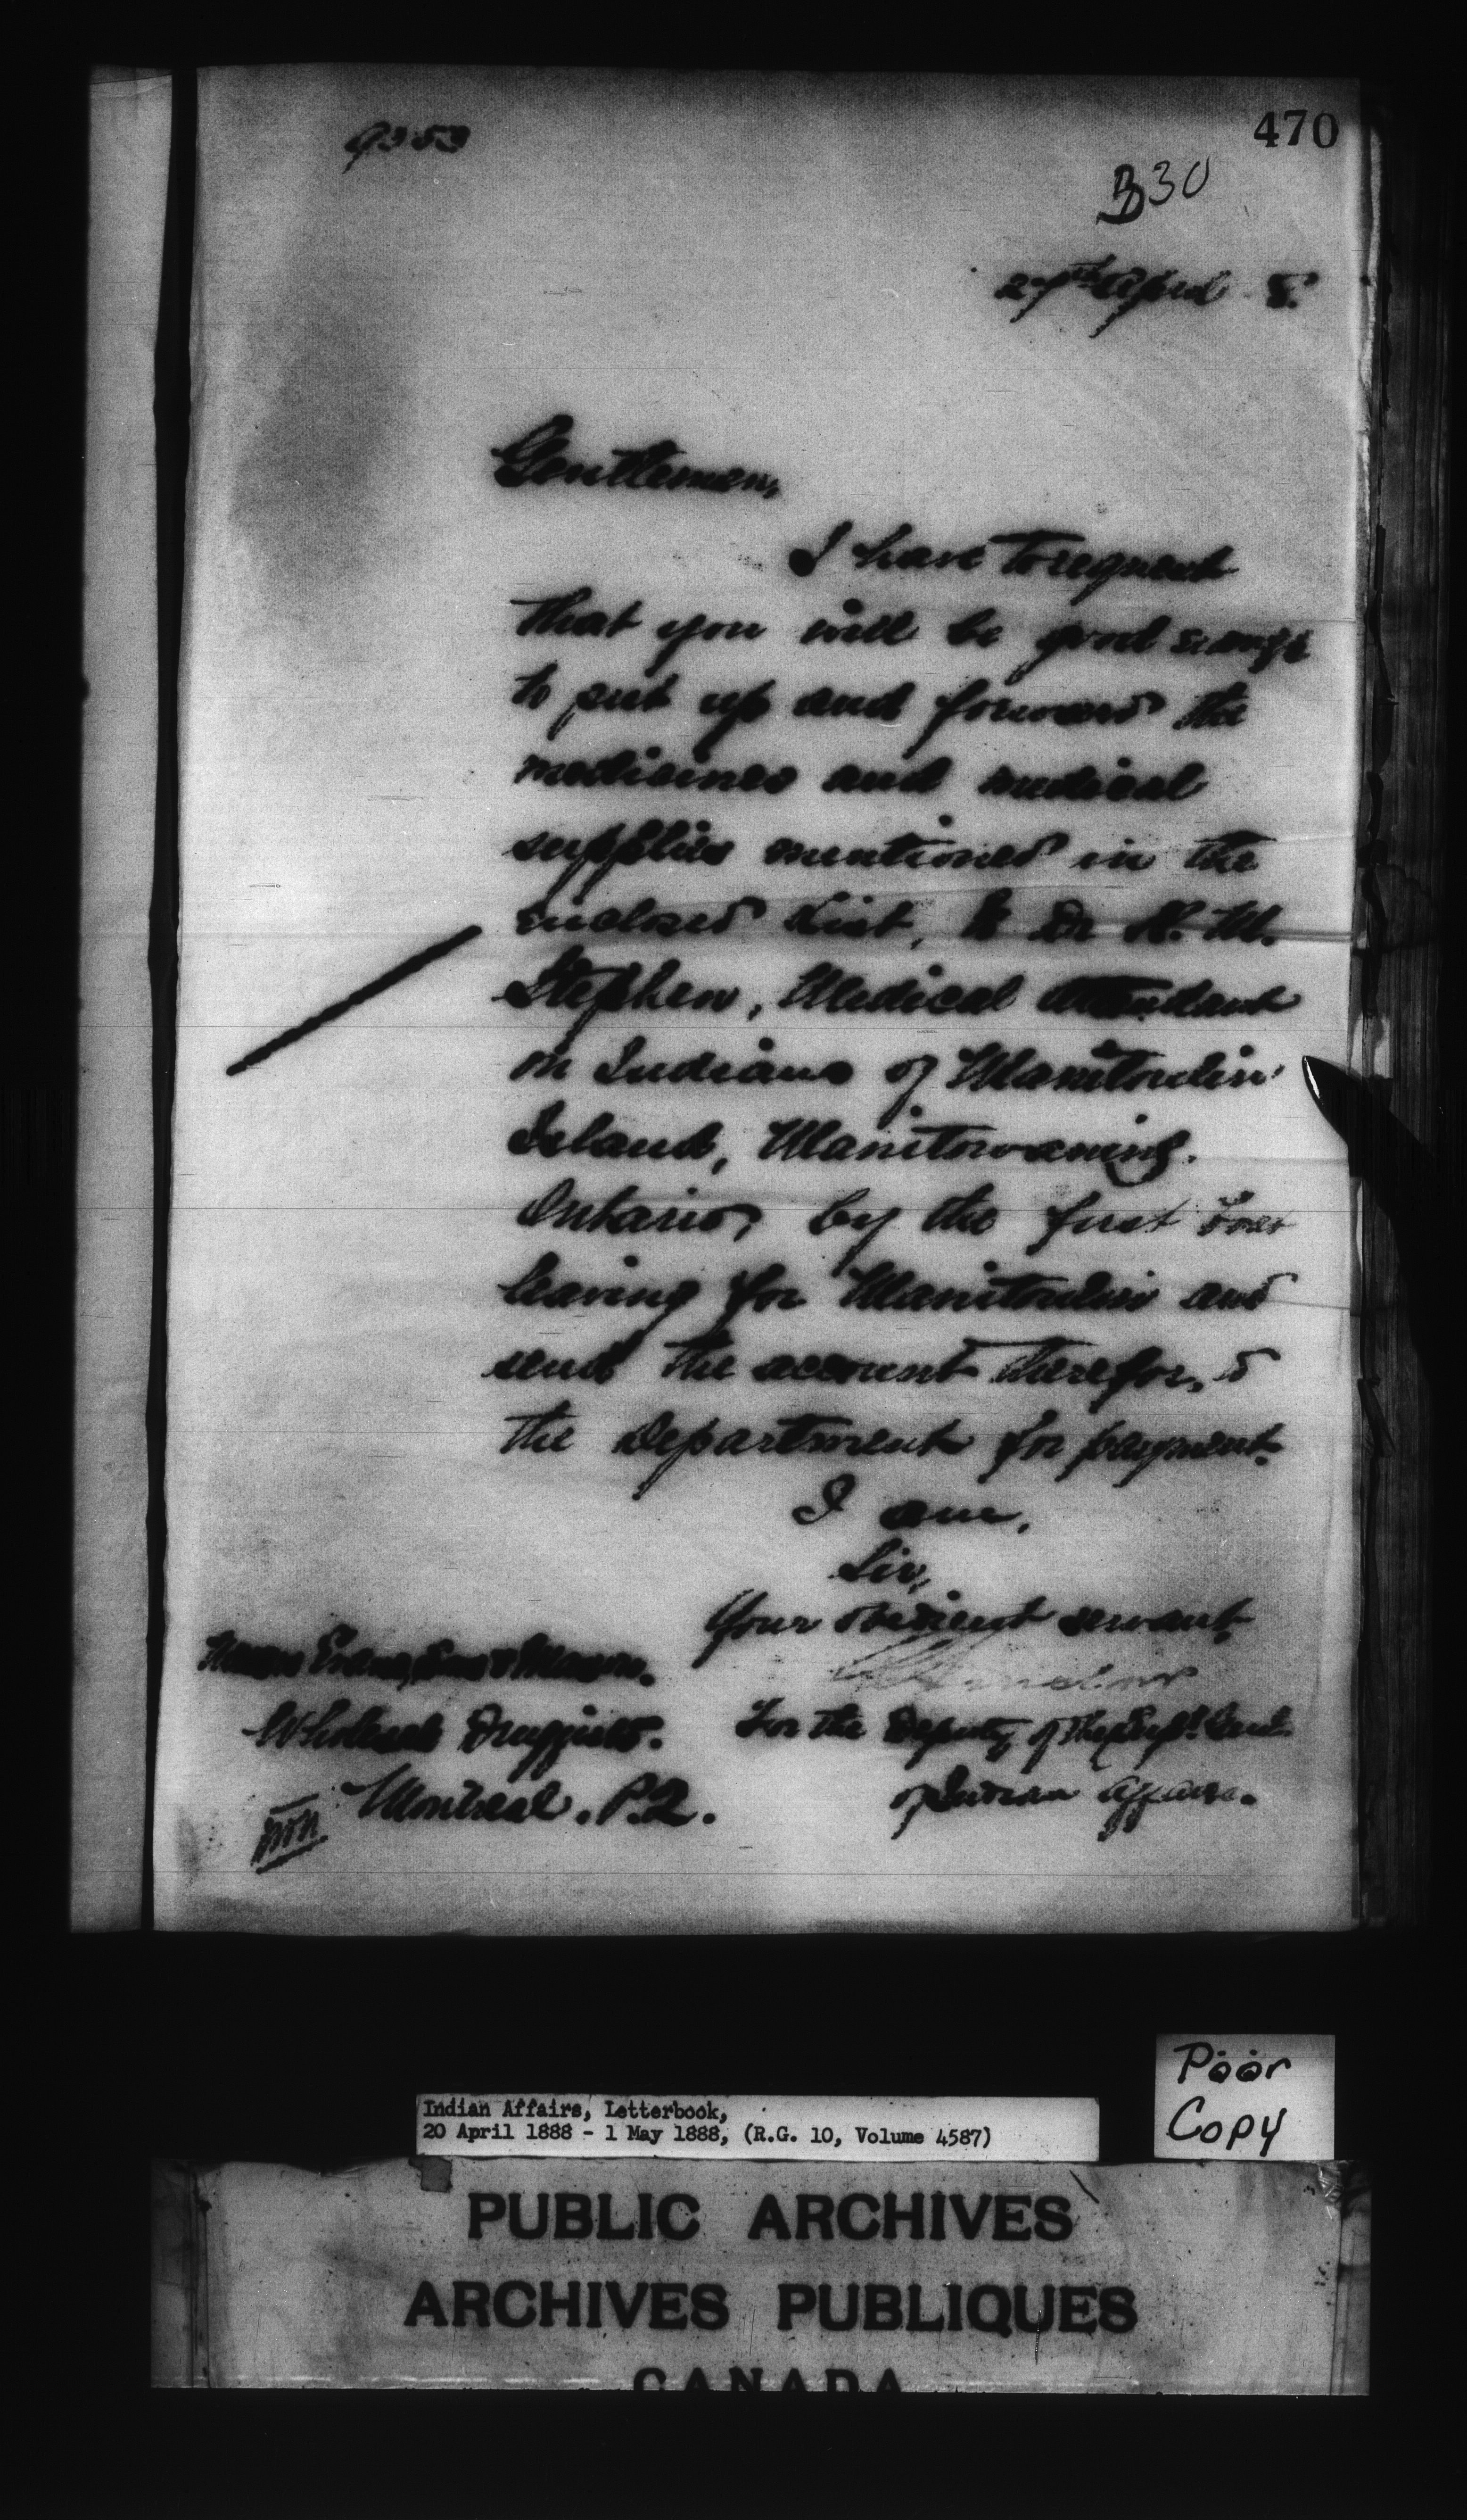 470
B30
27th April 8.
Gentlemen,
I have to request
that you will be good enough
to put up and forward the
medicines and medical
supplies mentioned in the
enclosed list, to Dr
Stephen, Medical Attendant
on Indians of Manitoulin
Island, Manitowaning.
Ontario, by the first
leaving for Manitoulin and
send the account therefor,
the Department for payment.
I am,
Sir,
Your obedient servant
Messrs Evans, Sons & Mason.
Wholesale Druggists.
For the Deputy of the Supt. Genl.
Montreal. P.Q.
of Indian Affairs.
Poor
Copy
Indian Affairs, Letterbook,
20 April 1888 - 1 May 1888, (R.G. 10, Volume 4587)
PUBLIC ARCHIVES
ARCHIVES PUBLIQUES
CANADA